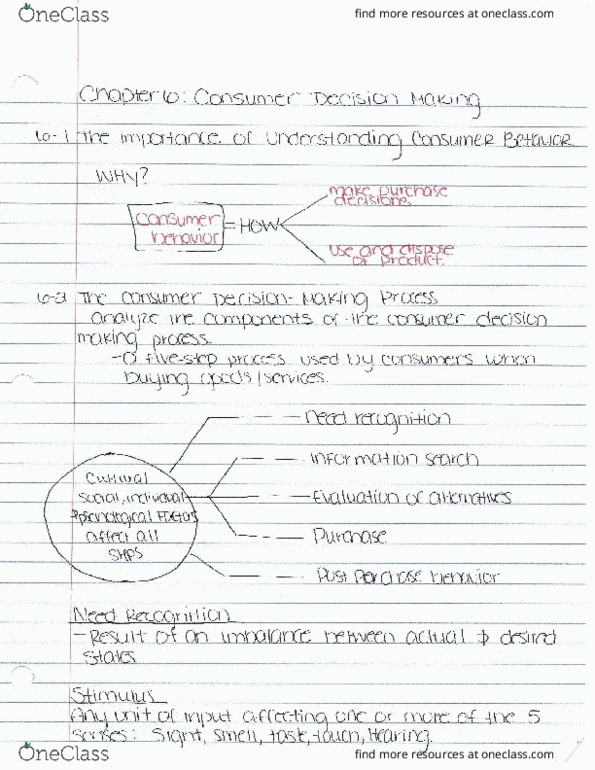 OneClass
find more resources at oneclass.com
Chapter 6: Consumer Decision Making
6-1 The importance of understanding Consumer Behavior
WHY?
make purchase
decisions
consumer
behavior = HOW
use and dispose
of product.
6-2 The Consumer Decision-Making Process
analyze the components of the consumer decision
making process
-a five-step process used by consumers when
buying goods/services.
Need recognition
information search
Cultural
social, individual
Evaluation of alternatives
& psychological factors
affect all
Purchase
steps
Post purchase behavior
Need Recognition
-Result of an imbalance between actual & desired
states
Stimulus
Any unit of input affecting one or more of the 5
senses: sight, smell, taste, touch, hearing
OneClass
find more resources at oneclass.com